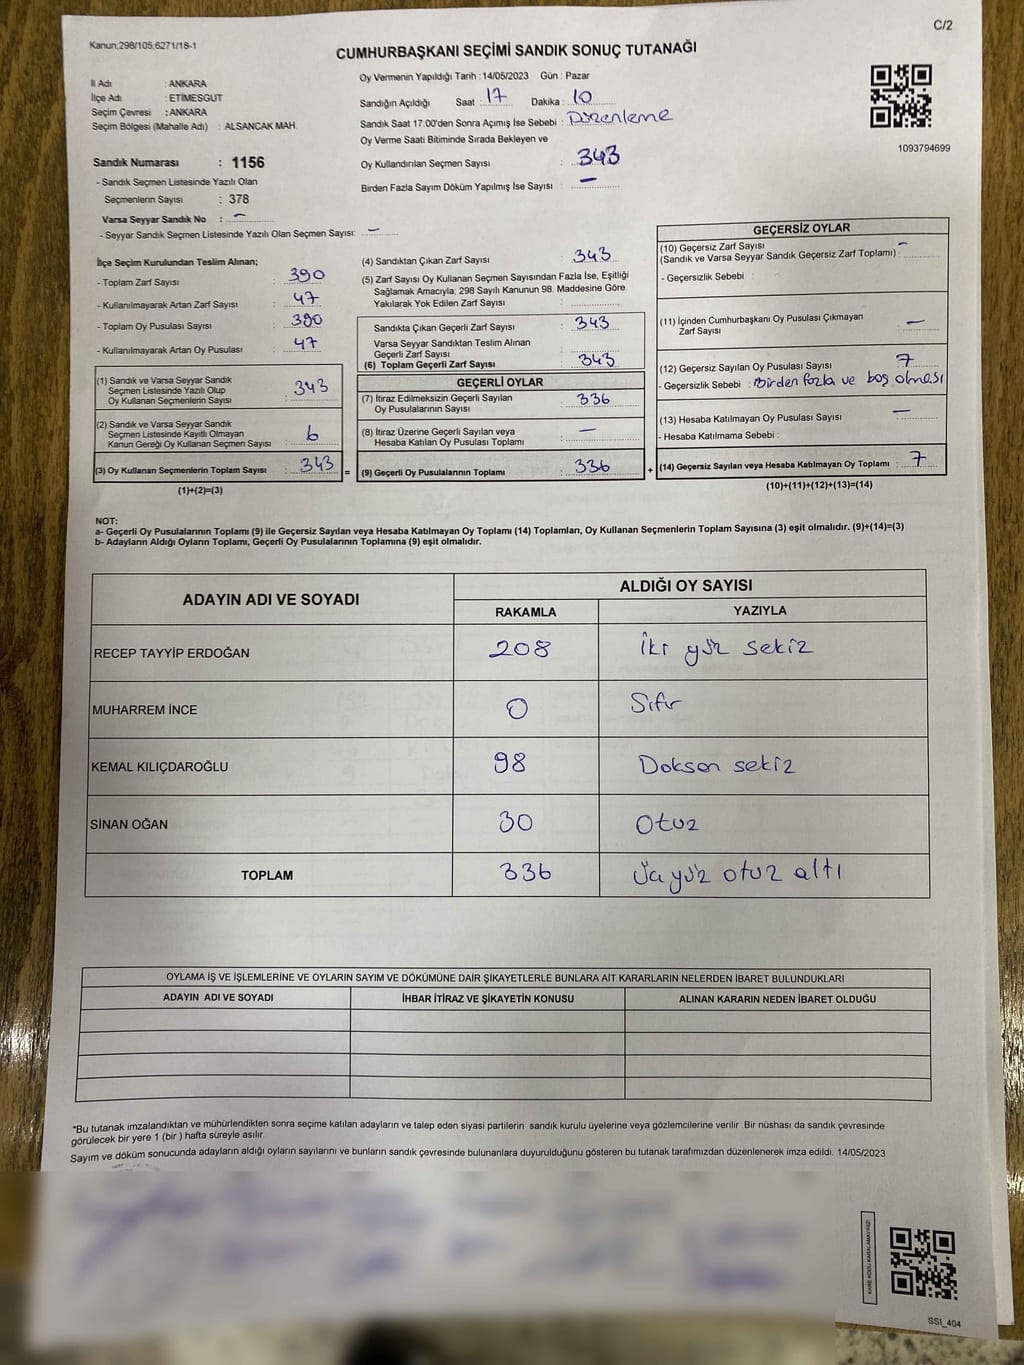 C/2
Kanun;298/105;6271/18-1
CUMHURBAŞKANI SEÇİMİ SANDIK SONUÇ TUTANAĞI
İl Adı : ANKARA
İlçe Adı : ETİMESGUT
Seçim Çevresi : ANKARA
Seçim Bölgesi (Mahalle Adı) : ALSANCAK MAH.
Oy Vermenin Yapıldığı Tarih : 14/05/2023 Gün : Pazar
Sandığın Açıldığı Saat : 17 Dakika : 10
Sandık Saat 17.00'den Sonra Açımış İse Sebebi : Düzenleme
Oy Verme Saati Bitiminde Sırada Bekleyen ve
Oy Kullandırılan Seçmen Sayısı : 343
Birden Fazla Sayım Döküm Yapılmış İse Sayısı : -
1093794699
Sandık Numarası : 1156
- Sandık Seçmen Listesinde Yazılı Olan
Seçmenlerin Sayısı : 378
Varsa Seyyar Sandık No : -
- Seyyar Sandık Seçmen Listesinde Yazılı Olan Seçmen Sayısı: -
İlçe Seçim Kurulundan Teslim Alınan;
- Toplam Zarf Sayısı : 390
- Kullanılmayarak Artan Zarf Sayısı : 47
- Toplam Oy Pusulası Sayısı : 390
- Kullanılmayarak Artan Oy Pusulası : 47
(1) Sandık ve Varsa Seyyar Sandık
Seçmen Listesinde Yazılı Olup
Oy Kullanan Seçmenlerin Sayısı : 343
(2) Sandık ve Varsa Seyyar Sandık
Seçmen Listesinde Kayıtlı Olmayan
Kanun Gereği Oy Kullanan Seçmen Sayısı : 6
(3) Oy Kullanan Seçmenlerin Toplam Sayısı : 343 =
(1)+(2)=(3)
(4) Sandıktan Çıkan Zarf Sayısı : 343
(5) Zarf Sayısı Oy Kullanan Seçmen Sayısından Fazla İse, Eşitliği
Sağlamak Amacıyla, 298 Sayılı Kanunun 98. Maddesine Göre
Yakılarak Yok Edilen Zarf Sayısı :
Sandıkta Çıkan Geçerli Zarf Sayısı : 343
Varsa Seyyar Sandıktan Teslim Alınan
Geçerli Zarf Sayısı :
(6) Toplam Geçerli Zarf Sayısı : 343
GEÇERLİ OYLAR
(7) İtiraz Edilmeksizin Geçerli Sayılan
Oy Pusulalarının Sayısı : 336
(8) İtiraz Üzerine Geçerli Sayılan veya
Hesaba Katılan Oy Pusulası Toplamı : -
(9) Geçerli Oy Pusulalarının Toplamı : 336 +
GEÇERSİZ OYLAR
(10) Geçersiz Zarf Sayısı
(Sandık ve Varsa Seyyar Sandık Geçersiz Zarf Toplamı) : -
- Geçersizlik Sebebi :
(11) İçinden Cumhurbaşkanı Oy Pusulası Çıkmayan
Zarf Sayısı : -
(12) Geçersiz Sayılan Oy Pusulası Sayısı : 7
- Geçersizlik Sebebi : Birden fazla ve boş olması
(13) Hesaba Katılmayan Oy Pusulası Sayısı : -
- Hesaba Katılmama Sebebi :
(14) Geçersiz Sayılan veya Hesaba Katılmayan Oy Toplamı : 7
(10)+(11)+(12)+(13)=(14)
NOT:
a- Geçerli Oy Pusulalarının Toplamı (9) ile Geçersiz Sayılan veya Hesaba Katılmayan Oy Toplamı (14) Toplamları, Oy Kullanan Seçmenlerin Toplam Sayısına (3) eşit olmalıdır. (9)+(14)=(3)
b- Adayların Aldığı Oyların Toplamı, Geçerli Oy Pusulalarının Toplamına (9) eşit olmalıdır.
ADAYIN ADI VE SOYADI ALDIĞI OY SAYISI
RAKAMLA YAZIYLA
RECEP TAYYİP ERDOĞAN 208 İki yüz sekiz
MUHARREM İNCE 0 Sıfır
KEMAL KILIÇDAROĞLU 98 Doksan sekiz
SİNAN OĞAN 30 Otuz
TOPLAM 336 Üç yüz otuz altı
OYLAMA İŞ VE İŞLEMLERİNE VE OYLARIN SAYIM VE DÖKÜMÜNE DAİR ŞİKAYETLERLE BUNLARA AİT KARARLARIN NELERDEN İBARET BULUNDUKLARI
ADAYIN ADI VE SOYADI İHBAR İTİRAZ VE ŞİKAYETİN KONUSU ALINAN KARARIN NEDEN İBARET OLDUĞU
*Bu tutanak imzalandıktan ve mühürlendikten sonra seçime katılan adayların ve talep eden siyasi partilerin sandık kurulu üyelerine veya gözlemcilerine verilir. Bir nüshası da sandık çevresinde
görülecek bir yere 1 (bir) hafta süreyle asılır.
Sayım ve döküm sonucunda adayların aldığı oyların sayılarını ve bunların sandık çevresinde bulunanlara duyurulduğunu gösteren bu tutanak tarafımızdan düzenlenerek imza edildi. 14/05/2023
KARE KODU KARALAMAYINIZ!
SSI_404